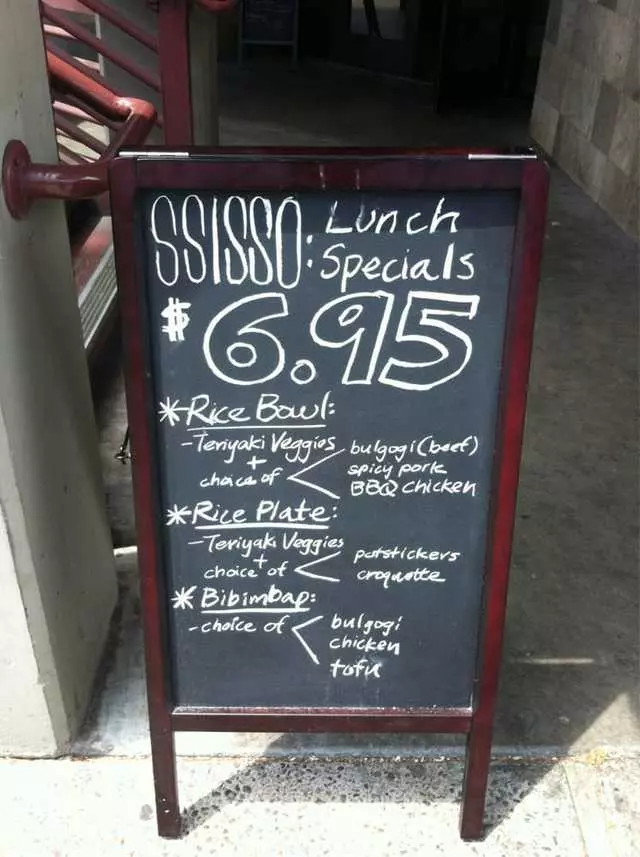 SSISSO: Lunch
Specials
$6.95
*Rice Bowl:
-Teriyaki Veggies
+
choice of < bulgogi (beef)
spicy pork
BBQ chicken
*Rice Plate:
-Teriyaki Veggies
+
choice of < potstickers
croquette
*Bibimbap:
-choice of < bulgogi
chicken
tofu